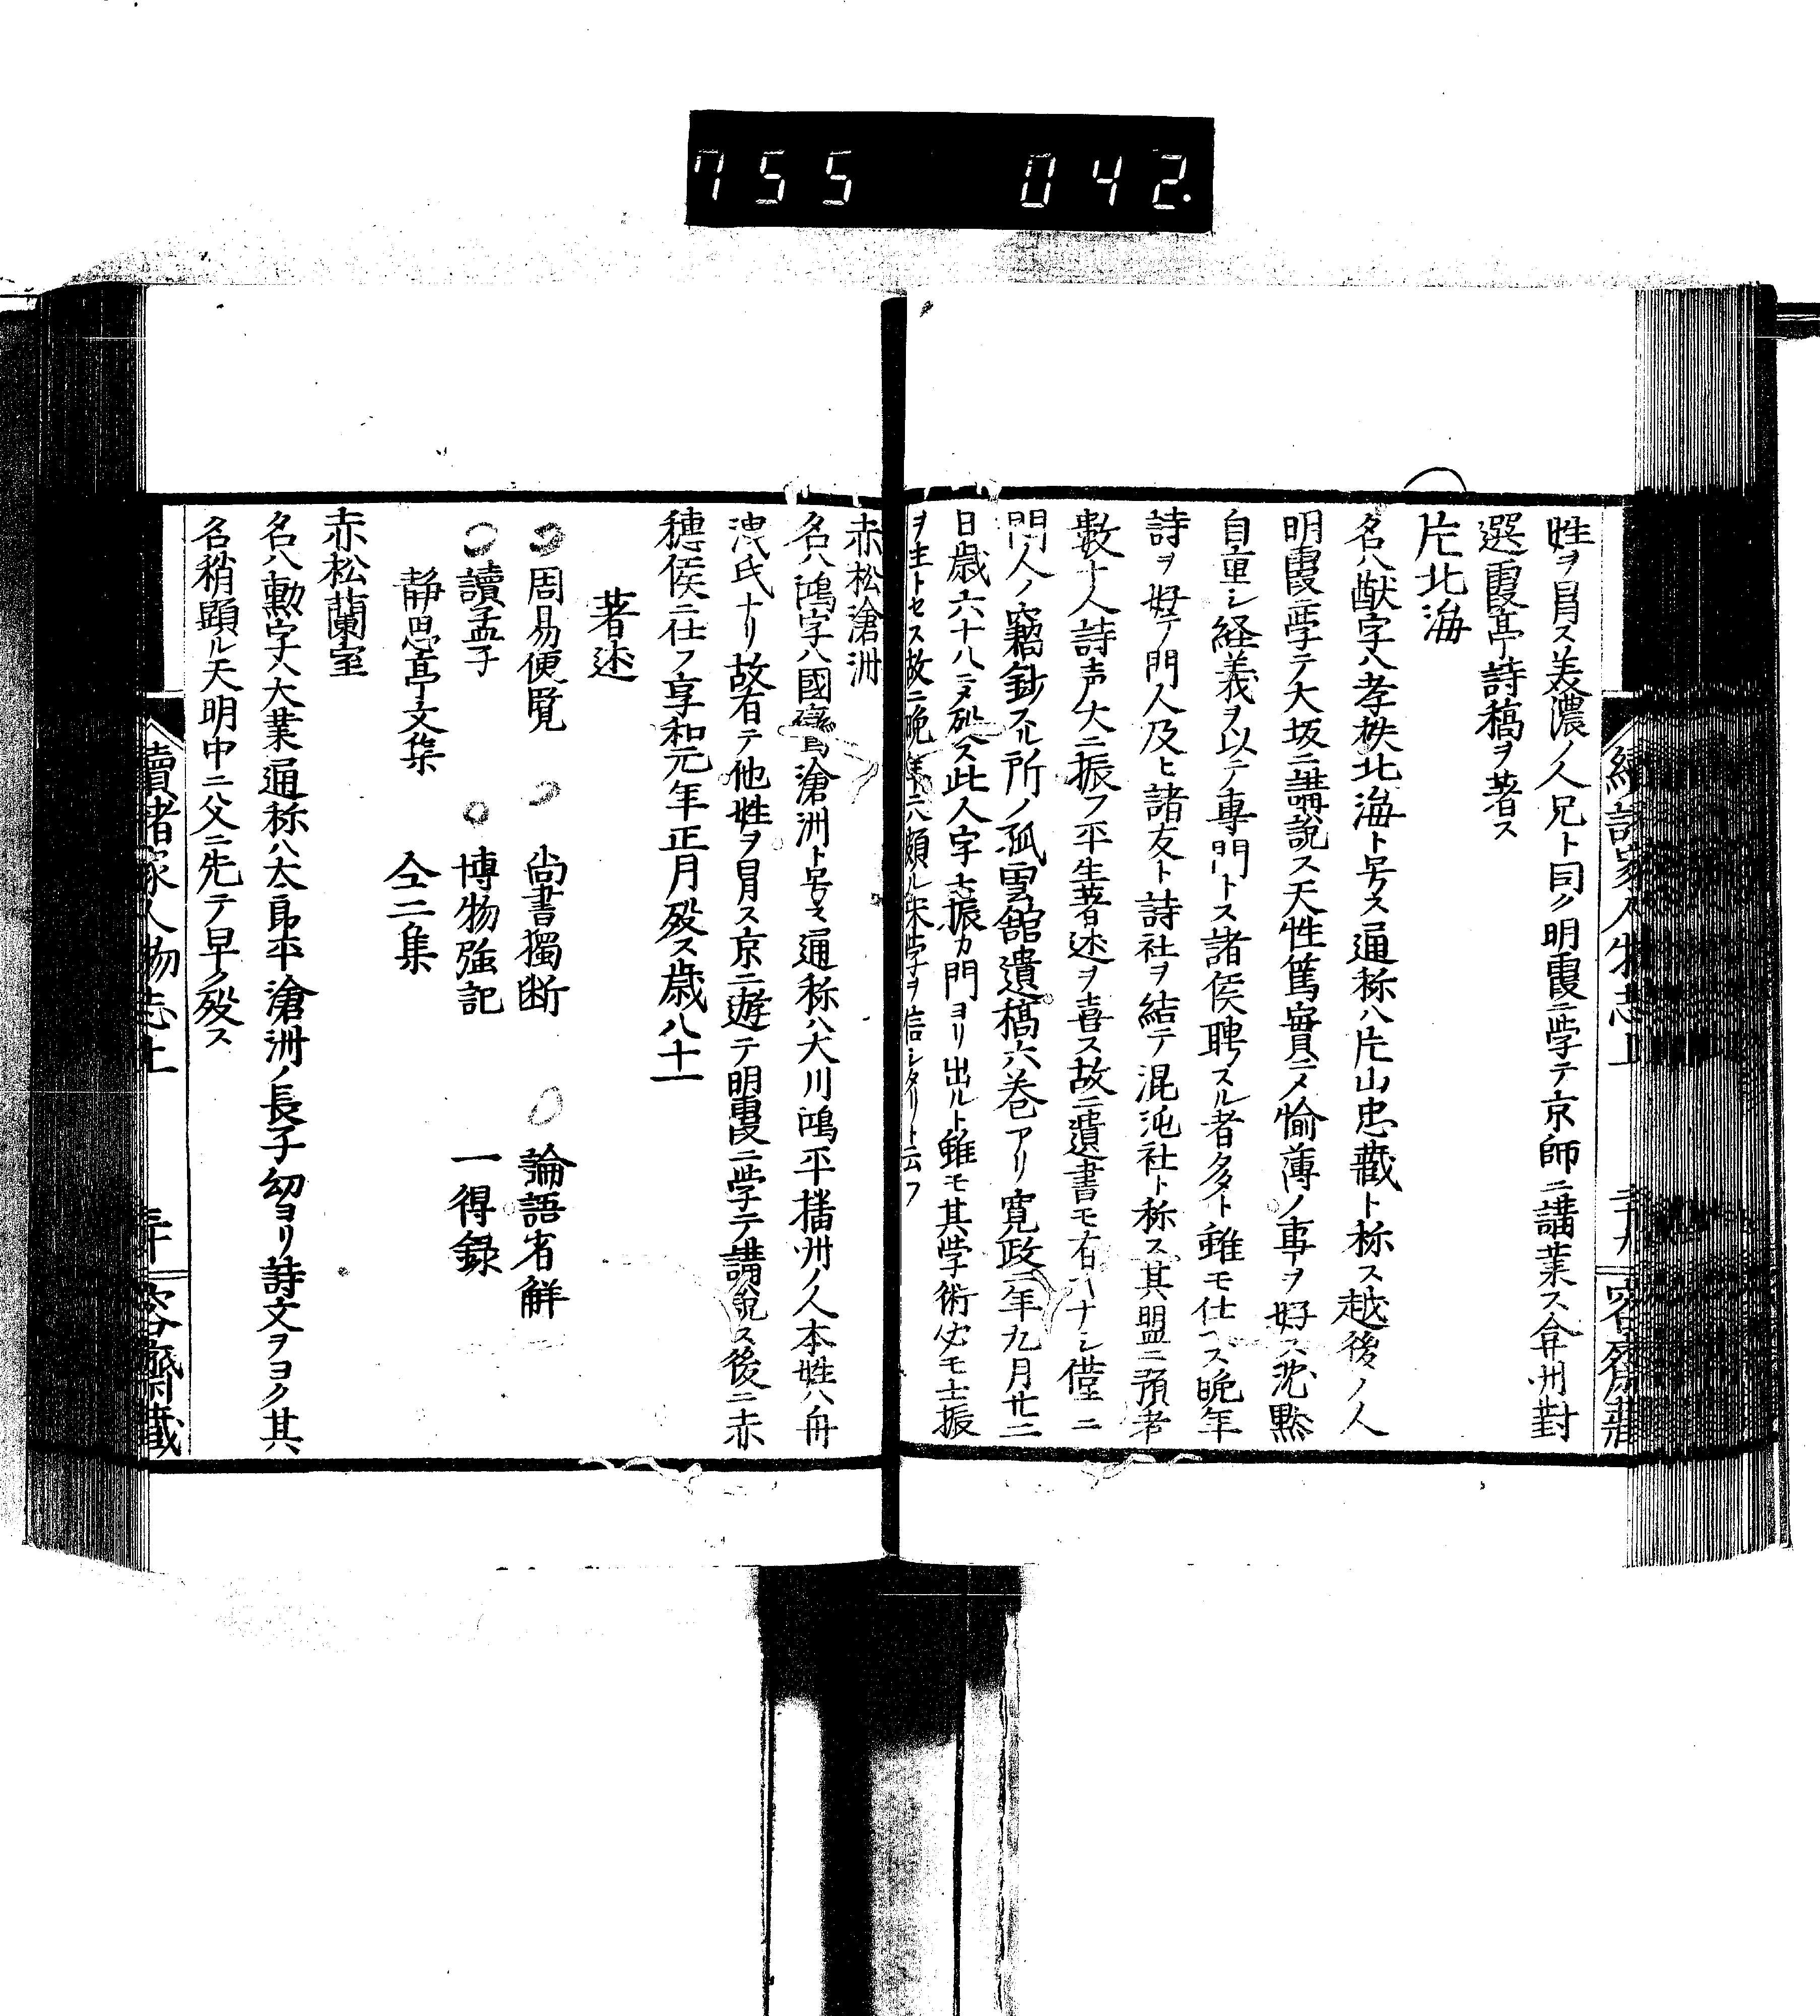 755 042.
姓ヲ冒ス美濃ノ人兄ト同ク明霞ニ学テ京師ニ講業ス弇州對
選霞亭詩稿ヲ著ス
片北海
名ハ猷字ハ孝秩北海ト号ス通称ハ片山忠藏ト称ス越後ノ人
明霞ニ学テ大坂ニ講説ス天性篤實ニメ愉薄ノ事ヲ好ス沈黙
自重シ経義ヲ以テ專門トス諸侯聘スル者多ト雖モ仕ヘス晩年
詩ヲ好ノ門人及ヒ諸友ト詩社ヲ結テ混沌社ト称ス其盟ニ預者
數十人詩声大ニ振フ平生著述ヲ喜ス故ニ遺書モ有ハナシ僅ニ
門人ノ竊鈔スル所ノ孤雲館遺稿六巻アリ寛政二年九月廿二
日歳六十八ニメ殁ス此人字士振カ門ヨリ出ルト雖モ其学術必モ士振
ヲ主トセス故ニ晩年ニハ頗ル朱学ヲ信シタリト云フ
赤松滄洲
名ハ鴻字ハ國鸞滄洲ト号ス通称ハ大川鴻平播州ノ人本姓ハ舟
洩氏ナリ故有テ他姓ヲ冒ス京ニ遊テ明霞ニ学テ講説ス後ニ赤
穗侯ニ仕フ享和元年正月殁ス歳八十一
著述
周易便覧 尚書獨断 論語省解
讀孟子 博物強記 一得録
静思亭文集 仝二集
赤松蘭室
名ハ勲字ハ大業通称ハ太郎平滄洲ノ長子幼ヨリ詩文ヲヨク其
名稍顕ル天明中ニ父ニ先テ早ク殁ス
續諸家人物志上 三十 容齋藏